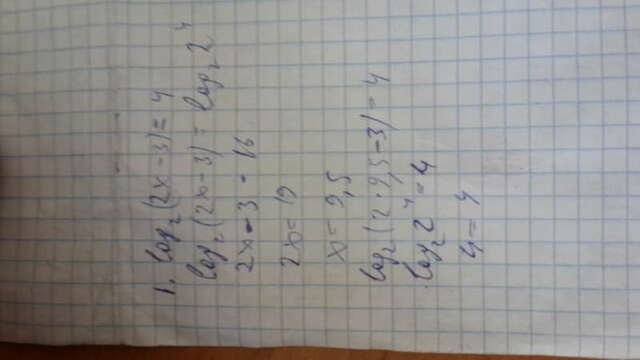 1. log₂(2x-3)=4
log₂(2x-3)=log₂2⁴
2x-3=16
2x=19
x=9,5
log₂(2·9,5-3)=4
log₂2⁴=4
4=4